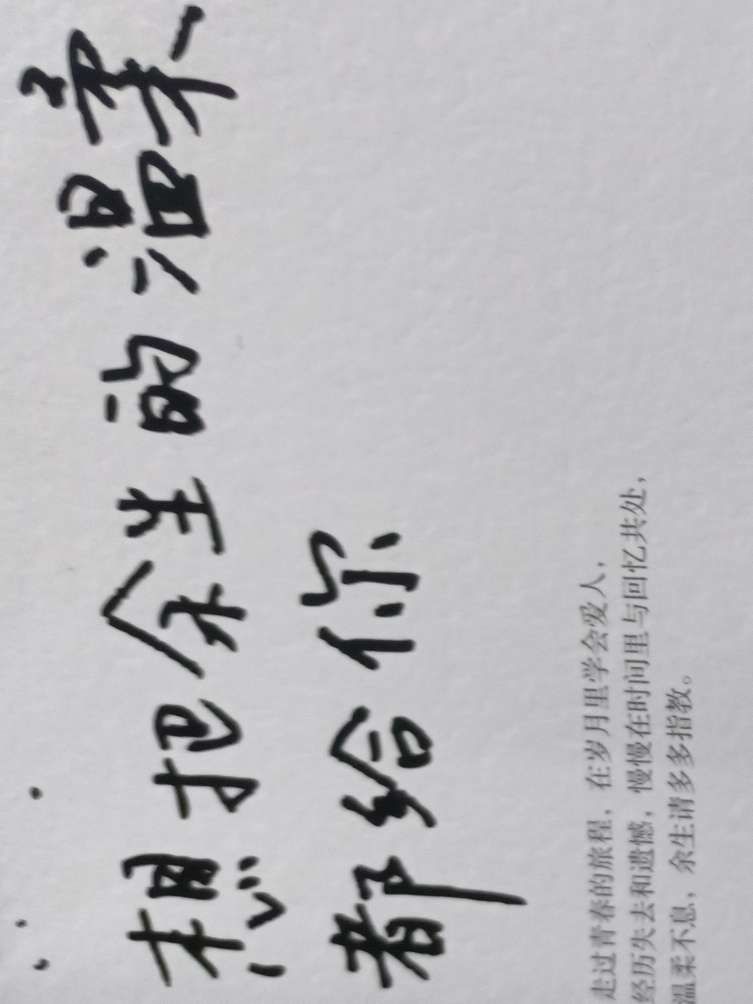 想把余生的温柔
都给你
走过青春的旅程，在岁月里学会爱人，
经历失去和遗憾，慢慢在时间里与回忆共处，
温柔不息，余生请多多指教。